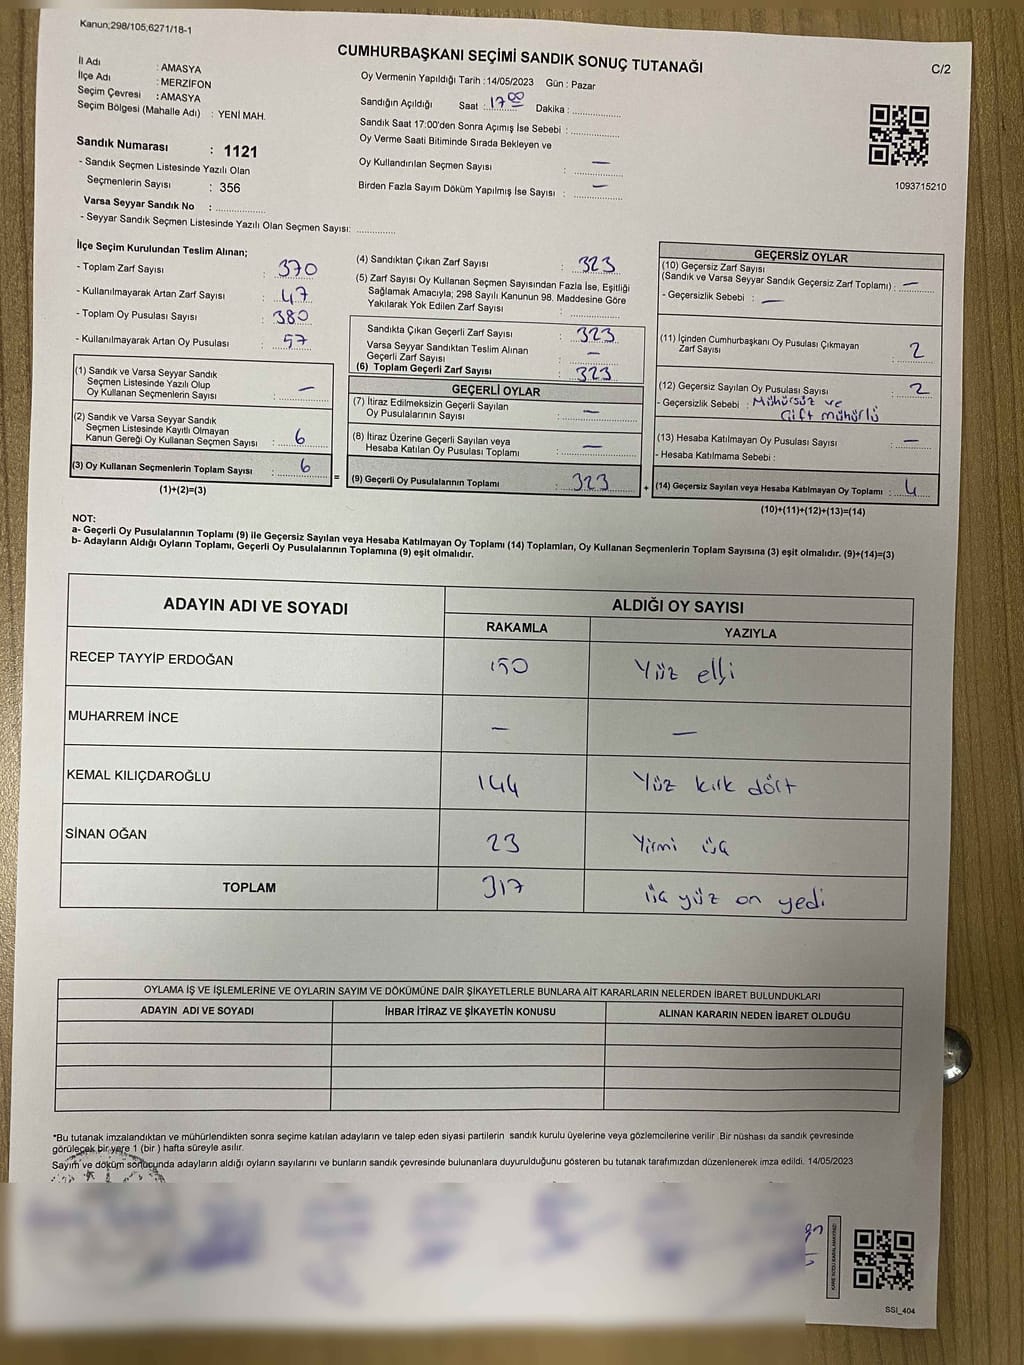 Kanun;298/105,6271/18-1
CUMHURBAŞKANI SEÇİMİ SANDIK SONUÇ TUTANAĞI
C/2
İl Adı : AMASYA
İlçe Adı : MERZİFON
Seçim Çevresi : AMASYA
Seçim Bölgesi (Mahalle Adı) : YENİ MAH.
Sandık Numarası : 1121
- Sandık Seçmen Listesinde Yazılı Olan
Seçmenlerin Sayısı : 356
Varsa Seyyar Sandık No : ..................
- Seyyar Sandık Seçmen Listesinde Yazılı Olan Seçmen Sayısı: .............
Oy Vermenin Yapıldığı Tarih :14/05/2023 Gün : Pazar
Sandığın Açıldığı Saat : 17 00 Dakika : ................
Sandık Saat 17:00'den Sonra Açımış İse Sebebi : ................
Oy Verme Saati Bitiminde Sırada Bekleyen ve
Oy Kullandırılan Seçmen Sayısı : —
Birden Fazla Sayım Döküm Yapılmış İse Sayısı : —
1093715210
İlçe Seçim Kurulundan Teslim Alınan;
- Toplam Zarf Sayısı : 370
- Kullanılmayarak Artan Zarf Sayısı : 47
- Toplam Oy Pusulası Sayısı : 380
- Kullanılmayarak Artan Oy Pusulası : 57
(1) Sandık ve Varsa Seyyar Sandık
Seçmen Listesinde Yazılı Olup
Oy Kullanan Seçmenlerin Sayısı : —
(2) Sandık ve Varsa Seyyar Sandık
Seçmen Listesinde Kayıtlı Olmayan
Kanun Gereği Oy Kullanan Seçmen Sayısı : 6
(3) Oy Kullanan Seçmenlerin Toplam Sayısı : 6
(1)+(2)=(3)
(4) Sandıktan Çıkan Zarf Sayısı : 323
(5) Zarf Sayısı Oy Kullanan Seçmen Sayısından Fazla İse, Eşitliği
Sağlamak Amacıyla; 298 Sayılı Kanunun 98. Maddesine Göre
Yakılarak Yok Edilen Zarf Sayısı : ................
Sandıkta Çıkan Geçerli Zarf Sayısı : 323
Varsa Seyyar Sandıktan Teslim Alınan
Geçerli Zarf Sayısı : —
(6) Toplam Geçerli Zarf Sayısı : 323
GEÇERLİ OYLAR
(7) İtiraz Edilmeksizin Geçerli Sayılan
Oy Pusulalarının Sayısı : —
(8) İtiraz Üzerine Geçerli Sayılan veya
Hesaba Katılan Oy Pusulası Toplamı : —
= (9) Geçerli Oy Pusulalarının Toplamı : 323
GEÇERSİZ OYLAR
(10) Geçersiz Zarf Sayısı
(Sandık ve Varsa Seyyar Sandık Geçersiz Zarf Toplamı) : —
- Geçersizlik Sebebi : —
(11) İçinden Cumhurbaşkanı Oy Pusulası Çıkmayan
Zarf Sayısı : 2
(12) Geçersiz Sayılan Oy Pusulası Sayısı : 2
- Geçersizlik Sebebi : Mühürsüz ve
Çift mühürlü
(13) Hesaba Katılmayan Oy Pusulası Sayısı : —
- Hesaba Katılmama Sebebi :
+ (14) Geçersiz Sayılan veya Hesaba Katılmayan Oy Toplamı : 4
(10)+(11)+(12)+(13)=(14)
NOT:
a- Geçerli Oy Pusulalarının Toplamı (9) ile Geçersiz Sayılan veya Hesaba Katılmayan Oy Toplamı (14) Toplamları, Oy Kullanan Seçmenlerin Toplam Sayısına (3) eşit olmalıdır. (9)+(14)=(3)
b- Adayların Aldığı Oyların Toplamı, Geçerli Oy Pusulalarının Toplamına (9) eşit olmalıdır.
ADAYIN ADI VE SOYADI ALDIĞI OY SAYISI
RAKAMLA YAZIYLA
RECEP TAYYİP ERDOĞAN 150 Yüz elli
MUHARREM İNCE — —
KEMAL KILIÇDAROĞLU 144 Yüz kırk dört
SİNAN OĞAN 23 Yirmi üç
TOPLAM 317 üç yüz on yedi
OYLAMA İŞ VE İŞLEMLERİNE VE OYLARIN SAYIM VE DÖKÜMÜNE DAİR ŞİKAYETLERLE BUNLARA AİT KARARLARIN NELERDEN İBARET BULUNDUKLARI
ADAYIN ADI VE SOYADI İHBAR İTİRAZ VE ŞİKAYETİN KONUSU ALINAN KARARIN NEDEN İBARET OLDUĞU
*Bu tutanak imzalandıktan ve mühürlendikten sonra seçime katılan adayların ve talep eden siyasi partilerin sandık kurulu üyelerine veya gözlemcilerine verilir .Bir nüshası da sandık çevresinde
görülecek bir yere 1 (bir ) hafta süreyle asılır.
Sayım ve döküm sonucunda adayların aldığı oyların sayılarını ve bunların sandık çevresinde bulunanlara duyurulduğunu gösteren bu tutanak tarafımızdan düzenlenerek imza edildi. 14/05/2023
KARE KODU KARALAMAYINIZ!
SSİ_404